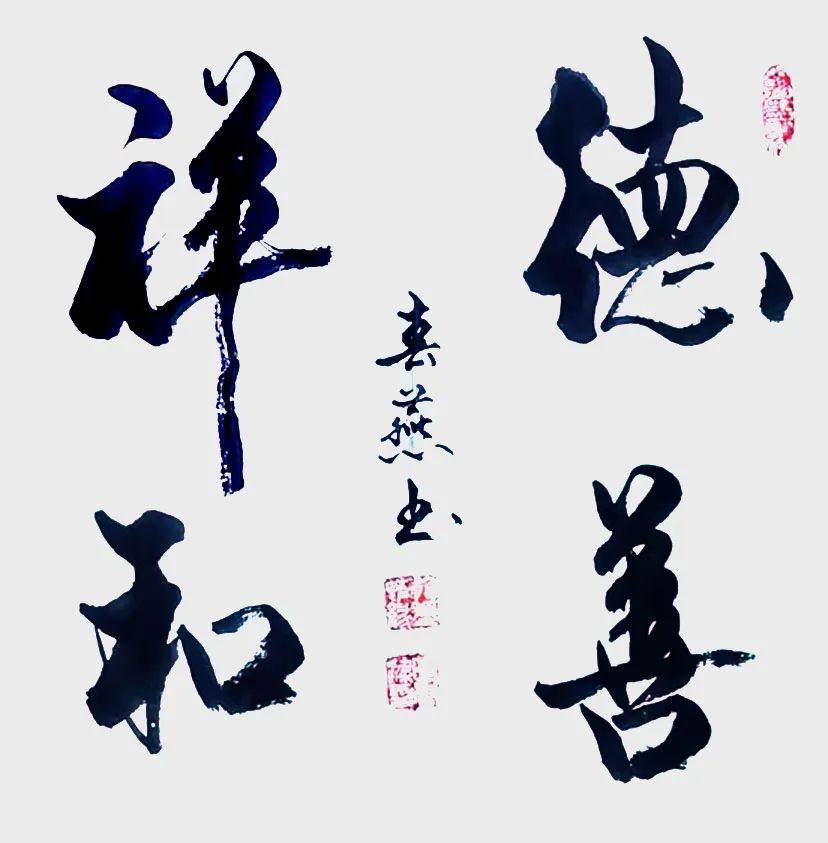 德善
祥和
春燕书